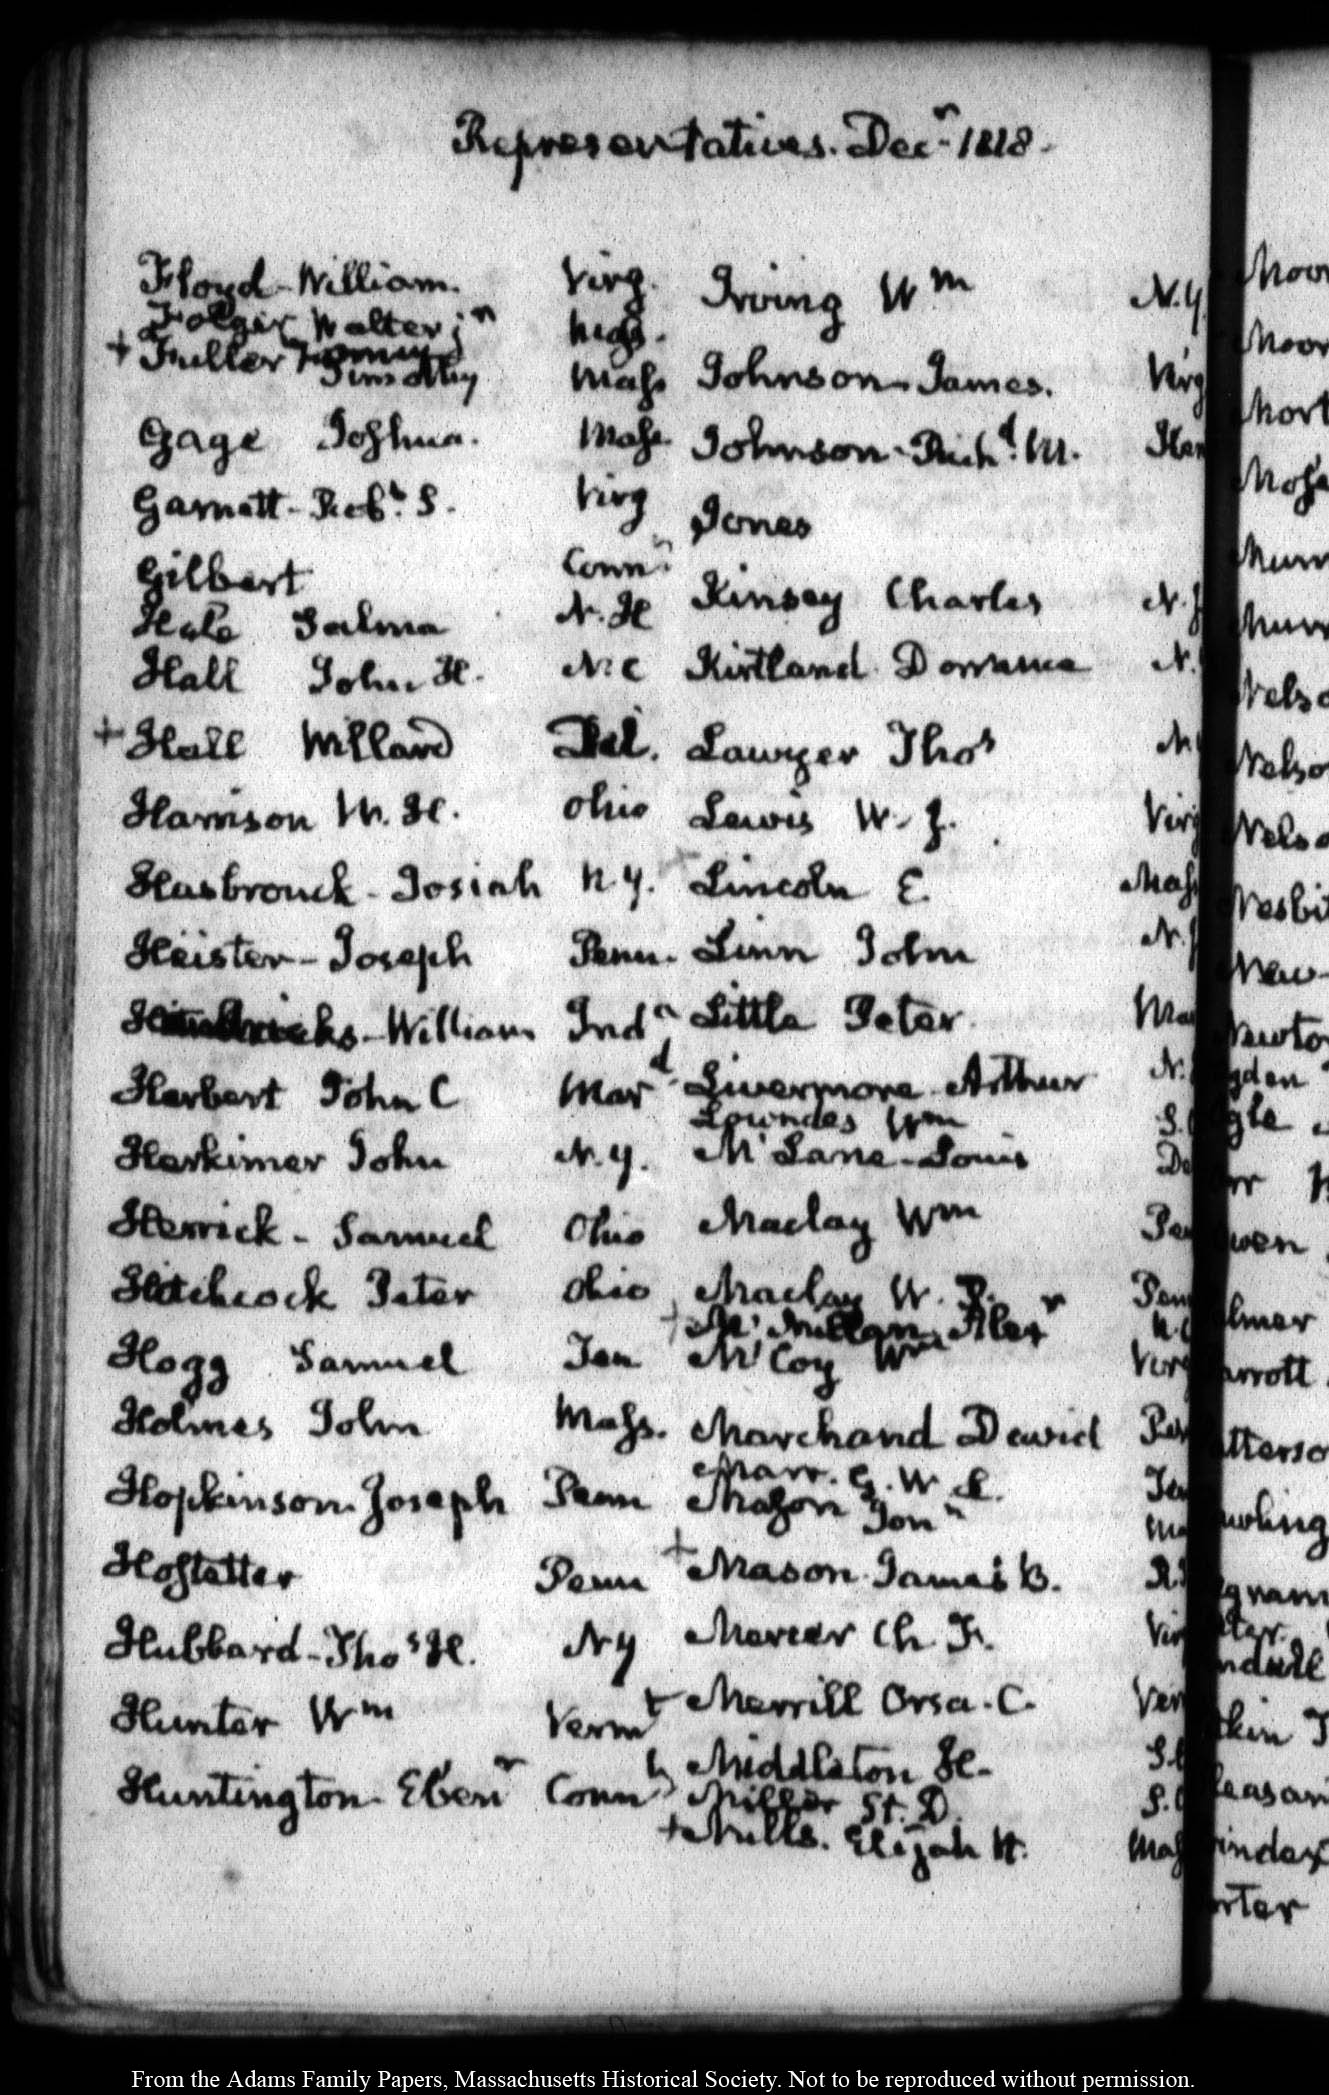 Representatives. Decr 1818.
Floyd - William. Virg.
Folger Walter jr Mass.
+ Fuller Timothy Mass
Gage Joshua. Mass.
Garnett - Robt. S. Virg
Gilbert Connt
Hale Salma N. H
Hall John H. N. C
+ Hall Willard Del.
Harrison W. H. Ohio
Hasbrouck - Josiah N. Y.
Heister - Joseph Penn.
Hendricks - William Inda
Herbert John C Mard
Herkimer John N. Y.
Herrick - Samuel Ohio
Hitchcock Peter Ohio
Hogg Samuel Ten
Holmes John Mass.
Hopkinson. Joseph Penn
Hostetter Penn
Hubbard - Thos H. N Y
Hunter Wm Vermt
Huntington - Ebenr Connt
Irving Wm N. Y.
Johnson - James. Virg
Johnson - Richd. M. Ken
Jones
Kinsey Charles N. J
Kirtland Dorrance N.
Lawyer Thos N
Lewis W. J. Virg
+ Lincoln E. Mass
Linn John N. J
Little Peter. Mar
Livermore - Arthur N.
Lowndes Wm S. C
McLane - Louis De
Maclay Wm Pen
Maclay W. P. Penn
+ McMillan Alexr N. C
McCoy Wm Virg
Marchand David Pen
Marr. G. W. L. Ten
Mason Jonn Ma
+ Mason James B. R. I
Mercer Ch. F. Vir
Merrill Orsa. C. Ver
Middleton H. S. C
Miller St. D. S. C
+ Mills. Elijah H. Mass
Moor
Moor
Mort
Mose
Murr
Murr
Nelso
Nelso
Nelso
Nesbit
New
Newto
gden
gle
rr
wen
lmer
arrott
tterso
wling
gram
ter.
ndall
kin T
leasan
index
rter
From the Adams Family Papers, Massachusetts Historical Society. Not to be reproduced without permission.